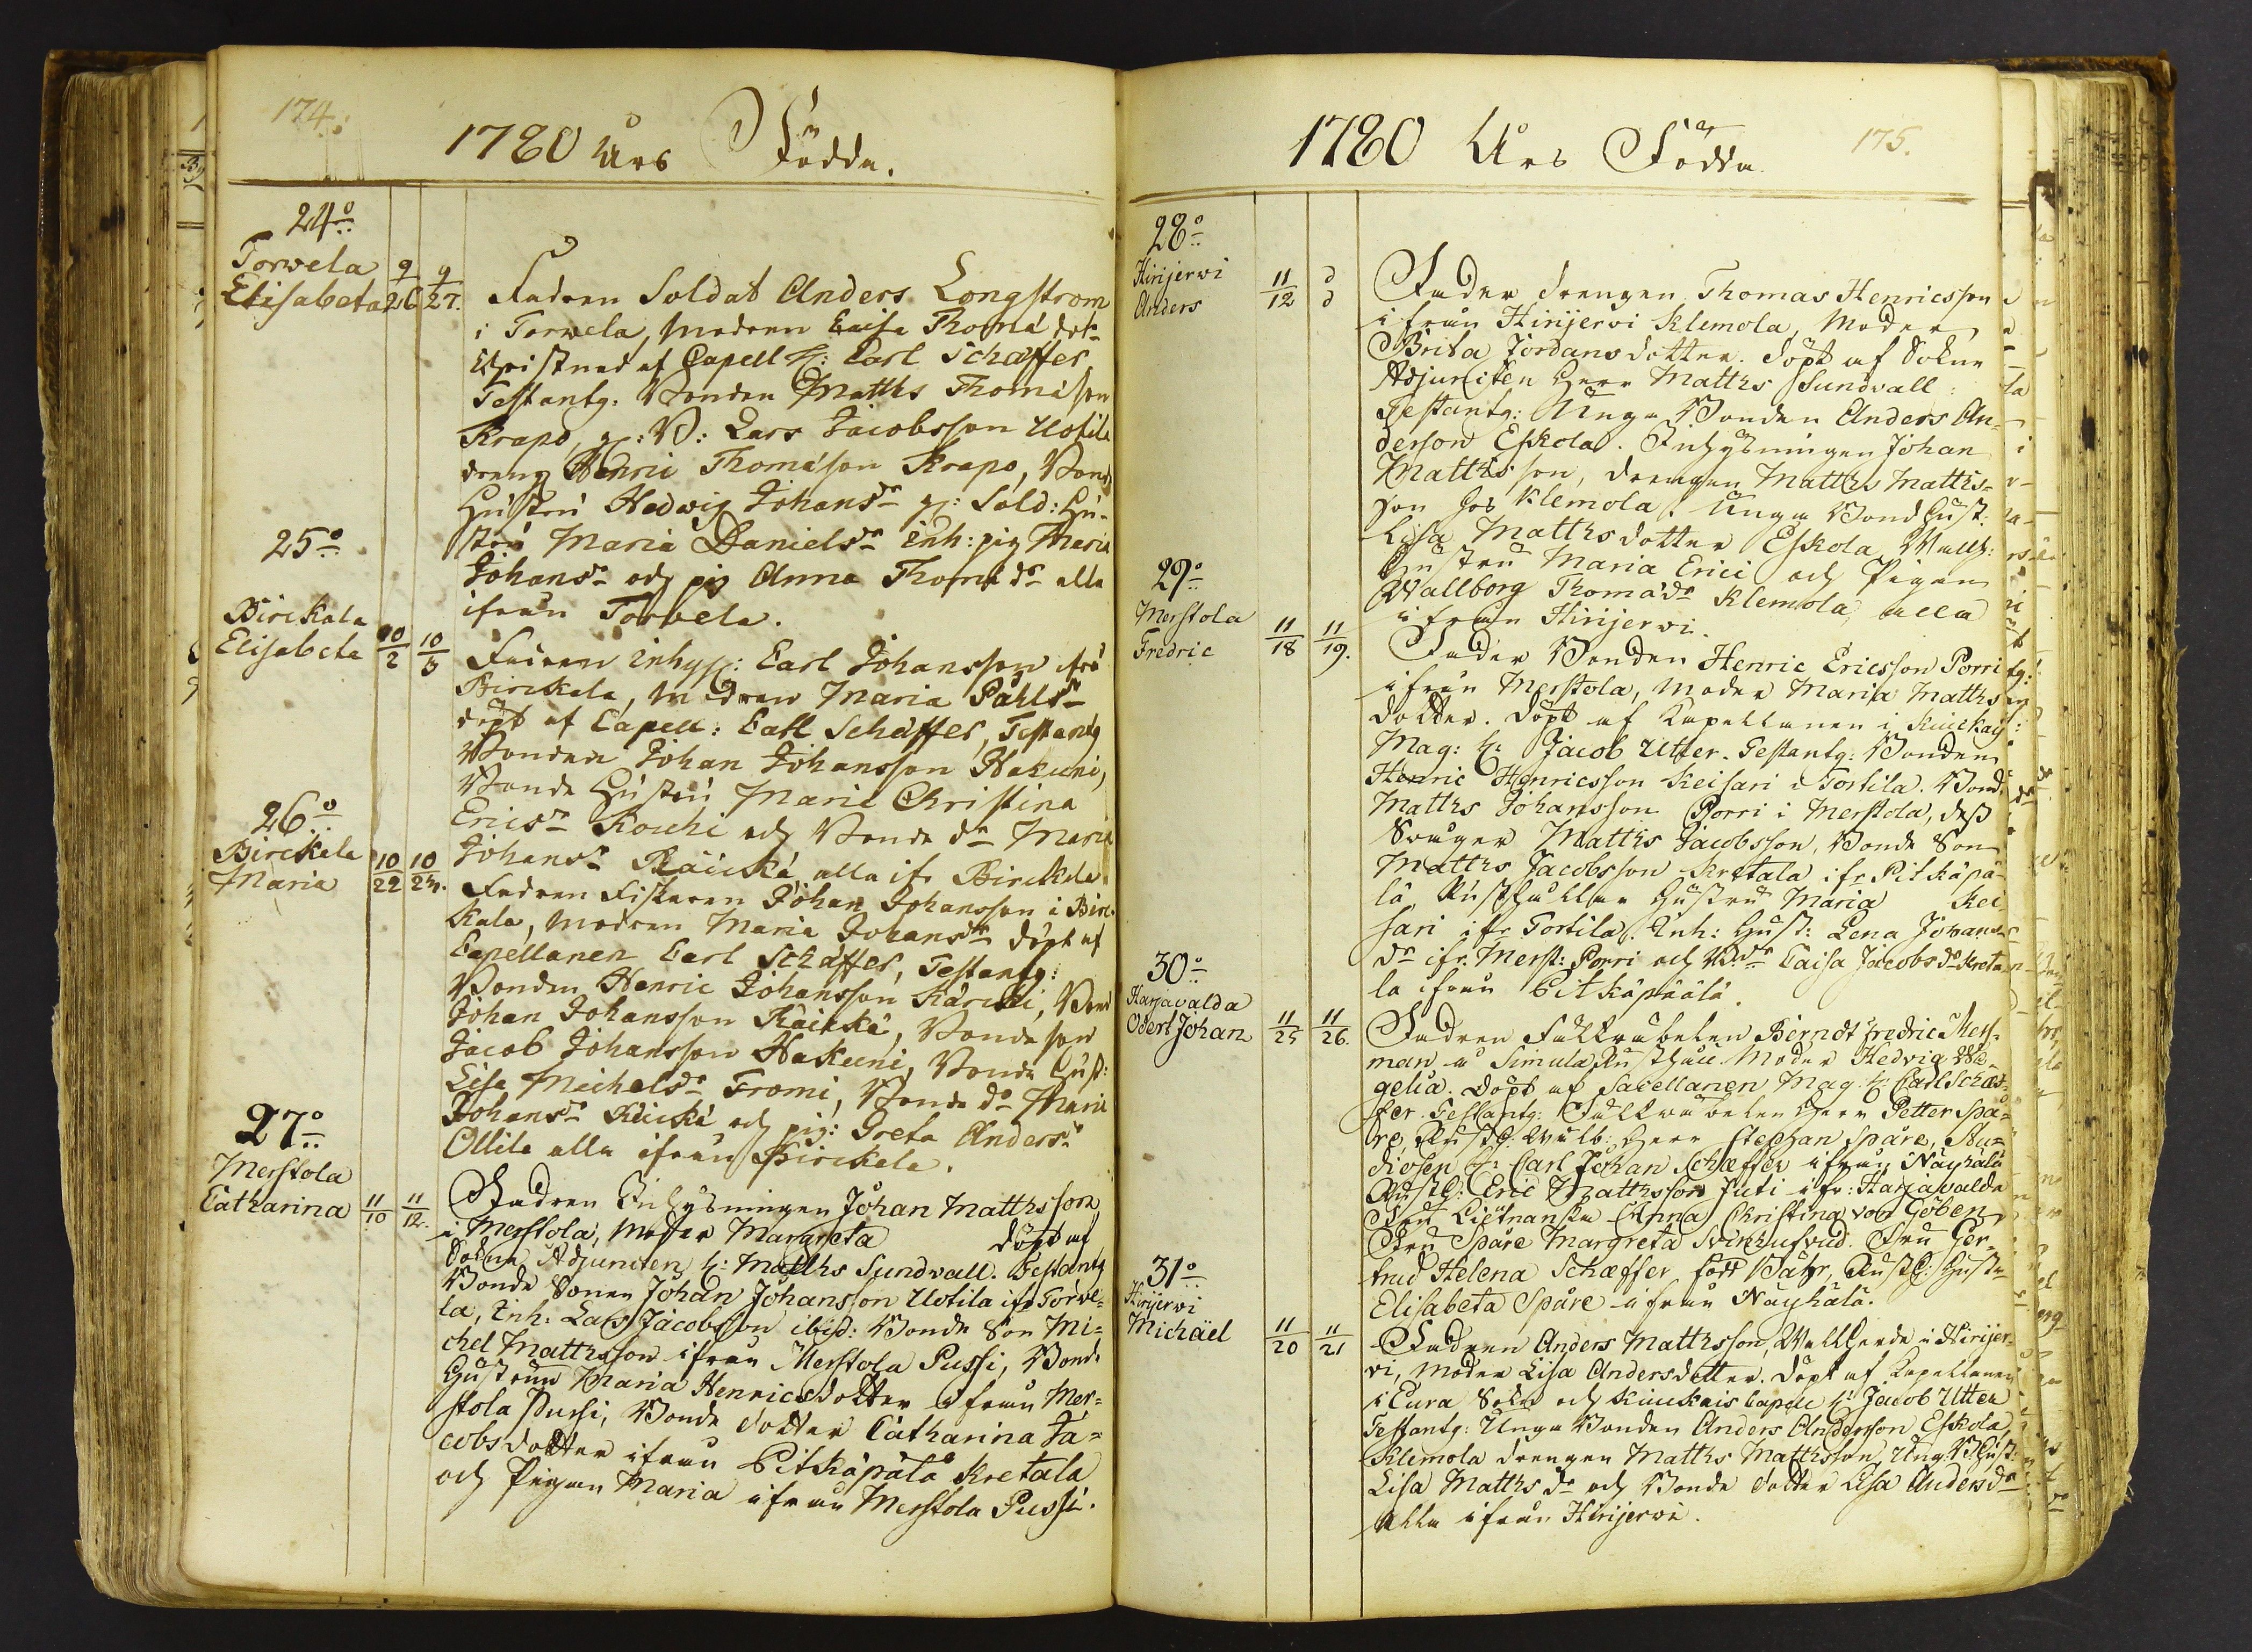 174.
1780 Års Födde.
24o
Torwela
Elisabeta
9/26
9/27.
Fadren Soldat Anders Longstrom
i Torwela, modren Caisa Thoma dot-
Christnad af Capell H: Carl Schæffer
Testantg. Bonden Matths Thomasson
Krapo, g: B: Lars Jacobsson Uotila
dreng Henric Thomasson Krapo, Bond
Hustru Hedwig Johansdr g: Sold: Hu-
stru Maria Danielsdr inh: pig Maria
Johansdr och pig Anna Thomædr alla
ifrån Torvela.
25o
Birckala
Elisabeta
10/2
10/3
Fadren inhys: Carl Johansson ifrå
Birckala, modren Maria Påhlsdr
döpt af Capell: Carl Schæffer, Testantg
Bonden Johan Johansson Hakuni,
Bonde Hustru Maria Christina
Ericsdr Kouhi och Bonde dr Maria
Johansdr Räickä, alla ifr Birckala.
26o
Birckala
Maria
10/22
10/24.
Fadren Fiskaren Johan Johansson i Birc-
kala, modren Maria Johansdr döpt af
Capellanen Carl Schæffer, Testantg:
Bonden Henric Johansson Kärcki, Bond
Johan Johansson Räickä, Bonde son
Jacob Johansson Hakuni, Bonde Hust:
Lisa Michelsdr Fromi, Bonde dr Maria
Johansdr Räickä och pig: Greta Andersdr
Ollila alla ifrån Birckala.
27o
Merstola
Catharina
11/10
11/12.
Fadren Inhysningen Johan Matthsson
i Merstola, Moder Margreta döpt af
Sokne Adjuncten H: Matths Sundvall. Testantg
Bonde Sonen Johan Johansson Uotila ifr Torve-
la, Inh: Lars Jacobsson ibid: Bonde Son Mi-
chel Matthsson ifrån Merstola Pussi, Bonde
Hustrun Maria Henricsdotter ifrån Mer-
stola Pussi, Bonde dotter Catharina Ja-
cobsdotter ifrån Pitkäpälä Kretala
och Pigan Maria ifrån Merstola Pussi.
1780 Års Födda.
175.
28o
Hirijerwi
Anders
11/12
d/d
Fader drengen Thomas Henricsson
ifrån Hirijerwi Klemola, Moder
Brita Jordansdotter. döpt af Sokne
Adjuncten Herr Matths Sundvall:
Testantg: Unga Bonden Anders An-
derson Eskola. Inhysningen Johan
Matthsson, drengen Matths Matths-
son hos Klemola. Unga Bond Hust:
Lisa Matthsdotter Eskola, Vallh:
Hustru Maria Erici och Pigan
Wallborg Thomædr Klemola, alla
ifrån Hirijerwi.
29o
Merstola
Fredric
11/18
11/19.
Fader Bonden Henric Ericsson Porri
ifrån Merstola, Moder Maria Matths
dotter. döpt af Kapellanen i Kiuckais
Mag: H: Jacob Utter. Testantg: Bonden
Henric Henricsson Keisari i Tortila. Bond:
Matths Johansson Porri i Merstola, dess
Svåger Matths Jacobsson, Bonde Son
Matths Jacobsson Kretala ifr Pitkäpä-
lä, Rusthållar Hustru Maria Kei-
sari ifr Tortila. Inh: Hust: Lena Johans
dr ifr. Merst: Porri och B:dr Caisa Jacobsdr Kreta-
la ifrån Pitkäpäälä.
30o
Harjavalda
Odert Johan
11/25
11/26.
Fadren Fältväbelen Berndt Fredric Mess-
man å Simula Rusthåll Moder Hedvig We-
gelia. döpt af Sacellanen Mag. H: Carl Schæf-
fer. Testantg: Fältwäbelen Herr Petter Spå-
re, Rusth: Herr Stephan Spåre, Stu-
diosen H: Carl Johan Schæffer ifrån Näyhälä
Rusth: Eric Matthsson Juti ifr: Harjavalda
Fru Lieutnanska Anna Christina von Göben
Fru Spåre Margreta Svinhufvud. Fru Ger-
trud Helena Schæffer född Påhr, Rusth: Hustr
Elisabeta Spåre ifrån Näyhälä.
31o
Hirijerwi
Michäel
11/20
11/21
Fadren Anders Matthsson, Vallherde i Hirijer-
vi, Moder Lisa Andersdotter. döpt af Kapellanen
i Eura Sokn och Kiuckais Capell H: Jacob Utter
Testantg: Unga Bonden Anders Anderson Eskola,
Klemola drengen Matths Matthsson, Ung. B. Hust:
Lisa Matthsdr och Bonde dotter Lisa Andersdr
alla ifrån Hirijerwi.